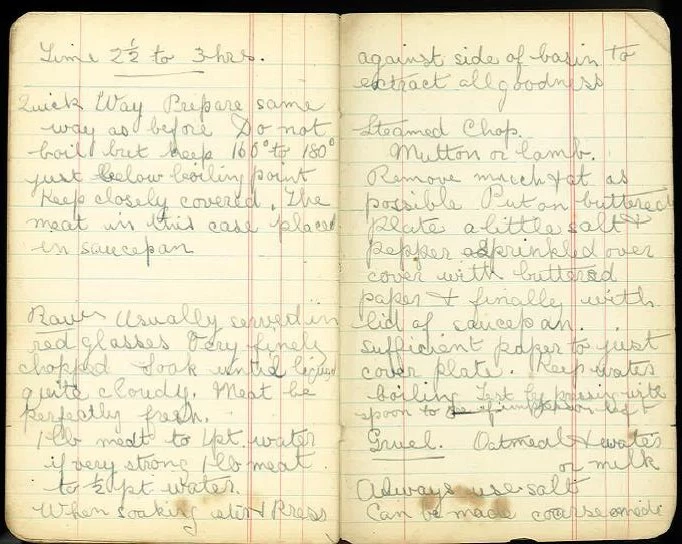 Time 2½ to 3 hrs.
Quick Way Prepare same
way as before Do not
boil but keep 160° to 180°
just below boiling point
Keep closely covered. The
meat in this case placed
in saucepan
Raw Usually served in
red glasses Very finely
chopped Soak until liquid
quite cloudy. Meat be
perfectly fresh.
1 lb meat to 1 pt. water
if very strong 1 lb meat
to ½ pt water.
When soaking stir & Press
against side of basin to
extract all goodness
Steamed Chop.
Mutton or lamb.
Remove much fat as
possible Put on buttered
plate a little salt &
pepper sprinkled over
cover with buttered
paper & finally with
lid of saucepan.
sufficient paper to just
cover plate. Keep water
boiling Test by pressing with
spoon to if
Gruel. Oatmeal & water
or milk
Always use salt
Can be made coarse